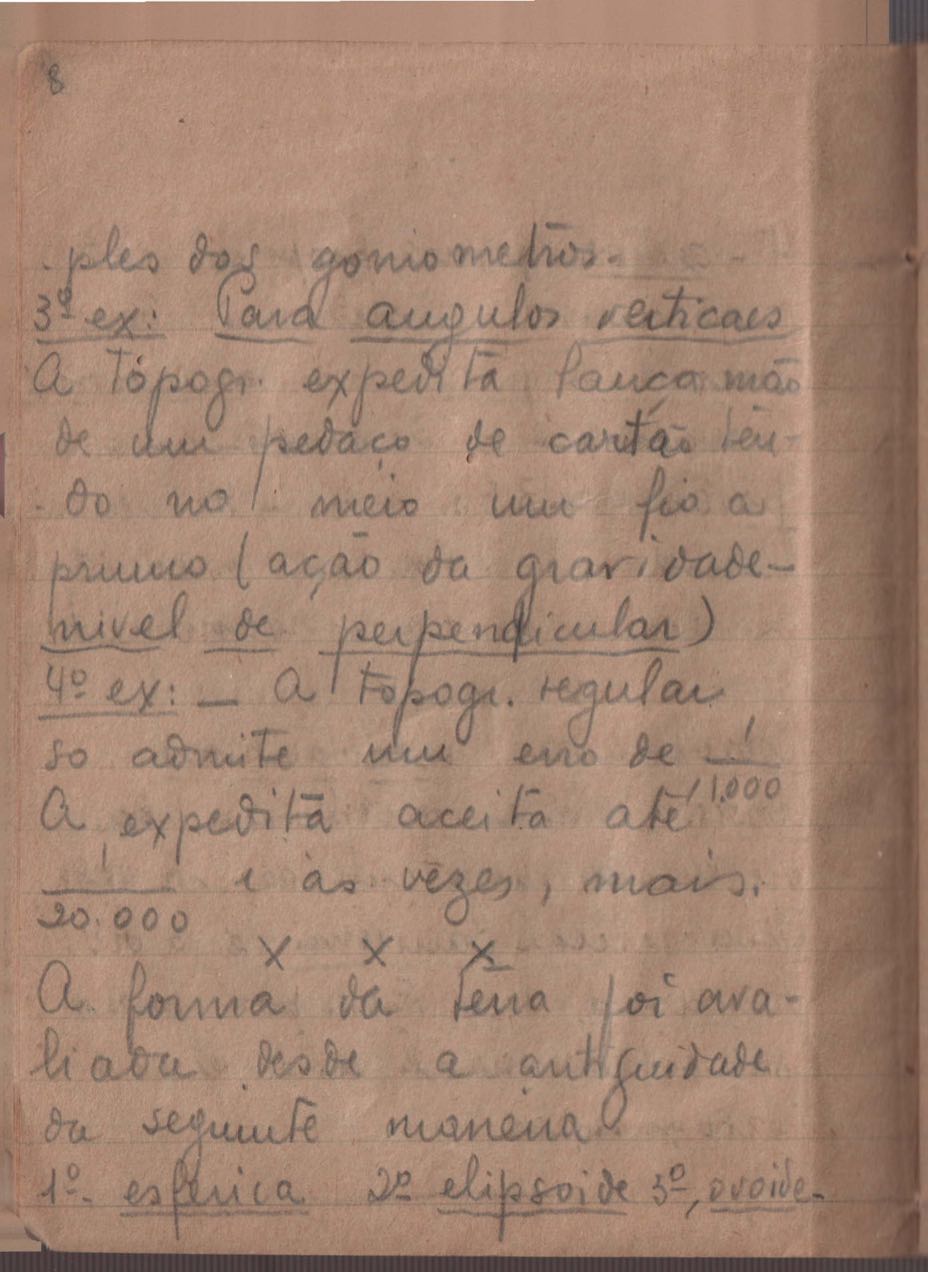 8
-ples dos goniometros.
3º ex: Para angulos verticaes
A topogr. expedita lança mão
de um pedaço de cartão ten-
-do no meio um fio a
prumo (ação da gravidade-
nivel de perpendicular)
4º ex: _ A topogr. regular
so admite um erro de 1/11.000
A expedita aceita até
1/20.000 e às vezes, mais.
x x x
A forma da terra foi ava-
liada desde a antiguidade
da seguinte maneira
1º- esferica 2º elipsoide 3º, ovoide-